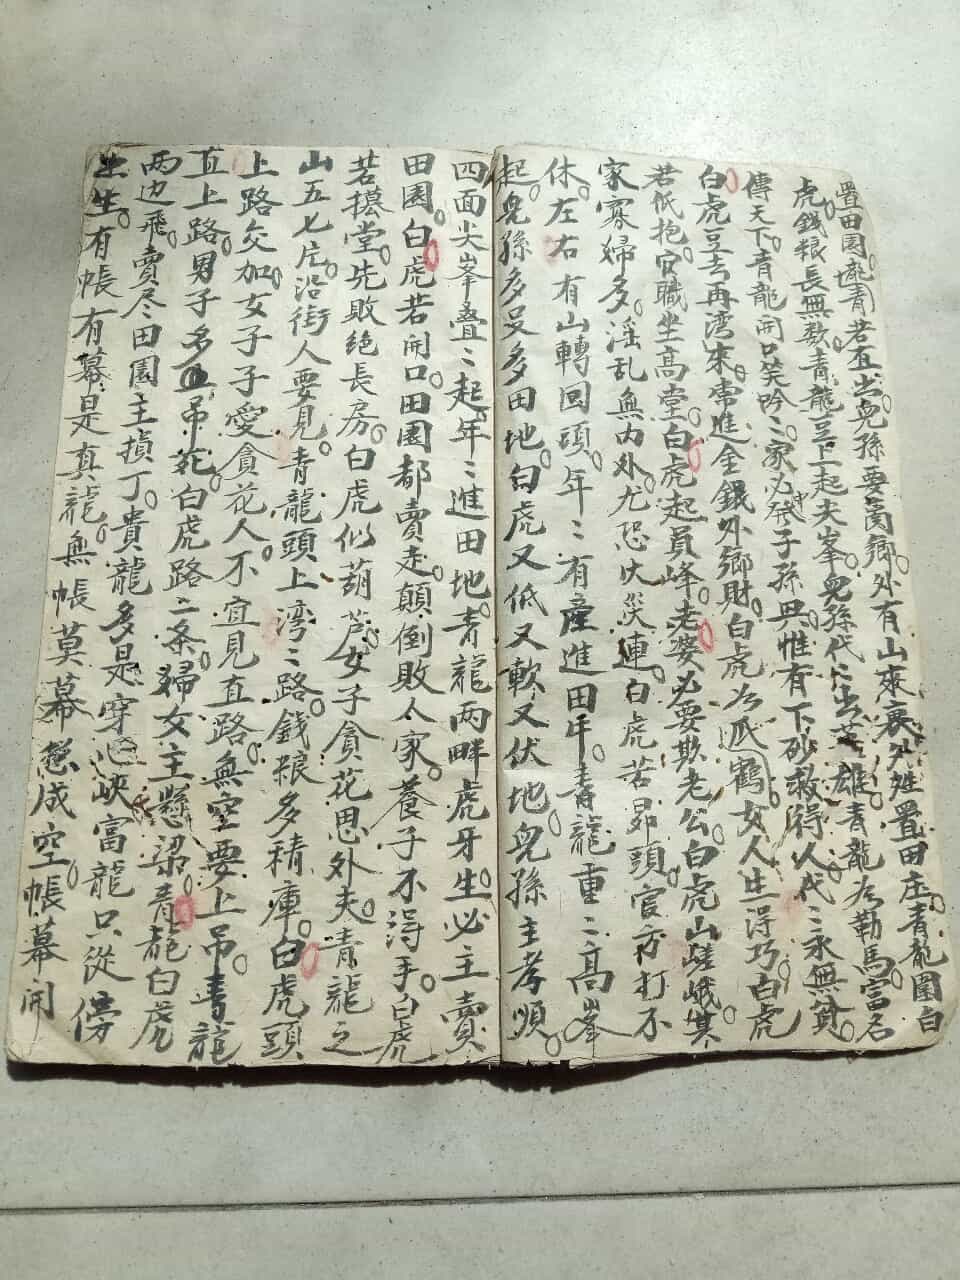 置田園。青龍若直出兒孫要茵鄉。外有山來裹外姓置田庄。青龍圍白
虎錢粮長無数。青龍豆上起夫峯。兒孫代〻出英雄青龍为勒馬。富名
傳天下。青龍開口笑吟〻家必發中子孫興。惟有下砂救得人代〻永無貧。
白虎豆去再湾來。常進金銀外鄉財。白虎为瓜鶴女人生得巧。白虎
若低抱。官職坐高堂。白虎起員峰。老婆必要欺老公。白虎山嵯峨。其
家寡婦多。淫乱無内外。尤恐火災連。白虎若昂頭。官方打不
休。左右有山轉回頭。年〻有產進田牛。青龍重〻高峯
起。兒孫多又多田地。白虎又低又軟。又伏地兒孫主孝順。
四面尖峯叠〻起。年〻進田地。青龍兩畔虎牙生。必主賣
田園。白虎若開口。田園都賣走。顛倒敗人家。養子不淂手。白虎
若攇堂。先敗絕長房。白虎似葫芦。女子貪花思外夫。青龍之
山五七庄。沿街人要見。青龍頭上湾〻路。錢粮多積庫。白虎頭
上路交加。女子子愛貪花人。不宜見直路。無空要上吊。青龍
直上路。男子多吊死。白虎路二条。婦女主懸梁。青龍白虎
两边飛。賣尽田園主損丁。貴龍多是穿心峽。富龍只從傍
出生。有帳有幕是真龍。無帳莫幕怱成空。帳幕開